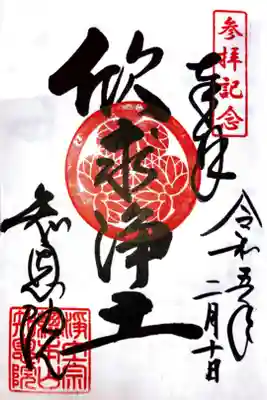 参拝記念
奉拝
令和五年
二月十日
欣求浄土
知恩院